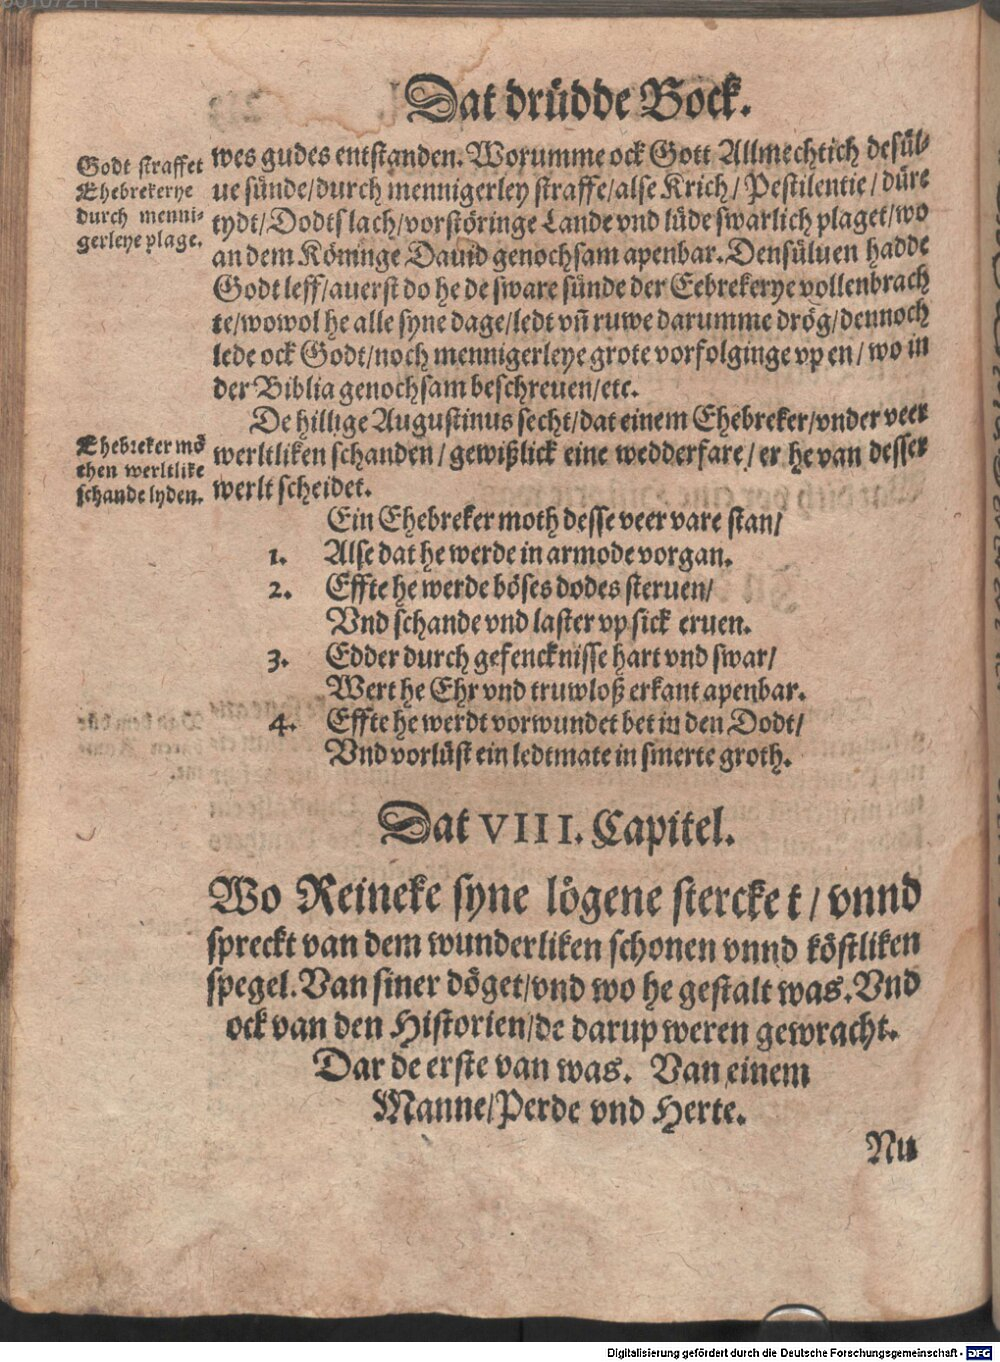 Dat drüdde Bock.
Godt straffet
Ehebrekerye
durch menni-
gerleye plage.
wes gudes entstanden. Worumme ock Gott Allmechtich desül-
ue sünde/durch mennigerley straffe/alse Krich/ Pestilentie/ düre
tydt/Dodtslach/vorstöringe Lande vnd lüde swarlich plaget/wo
an dem Köninge Dauid genochsam apenbar. Densüluen hadde
Godt leff/auerst do he de sware sünde der Eebrekerye vollenbrach
te/wowol he alle syne dage/ledt vñ ruwe darumme drög/dennoch
lede ock Godt/noch mennigerleye grote vorfolginge vp en/ wo in
der Biblia genochsam beschreuen/etc.
De hillige Augustinus secht/dat einem Ehebreker/vnder veer
Ehebreker mö
then werltlike
schande lyden.
werltliken schanden/ gewißlick eine wedderfare/ er he van desser
werlt scheidet.
Ein Ehebreker moth desse veer vare stan/
1. Alse dat he werde in armode vorgan.
2. Effte he werde böses dodes steruen/
Vnd schande vnd laster vp sick eruen.
3. Edder durch gefencknisse hart vnd swar/
Wert he Ehr vnd truwloß erkant apenbar.
4. Effte he werdt vorwundet bet in den Dodt/
Vnd vorlüst ein ledtmate in smerte groth.
Dat VIII. Capitel.
Wo Reineke syne lögene stercket/ vnnd
spreckt van dem wunderliken schonen vnnd köstliken
spegel. Van siner döget/vnd wo he gestalt was. Vnd
ock van den Historien/de darup weren gewracht.
Dar de erste van was. Van einem
Manne/Perde vnd Herte.
Nu
Digitalisierung gefördert durch die Deutsche Forschungsgemeinschaft - DFG